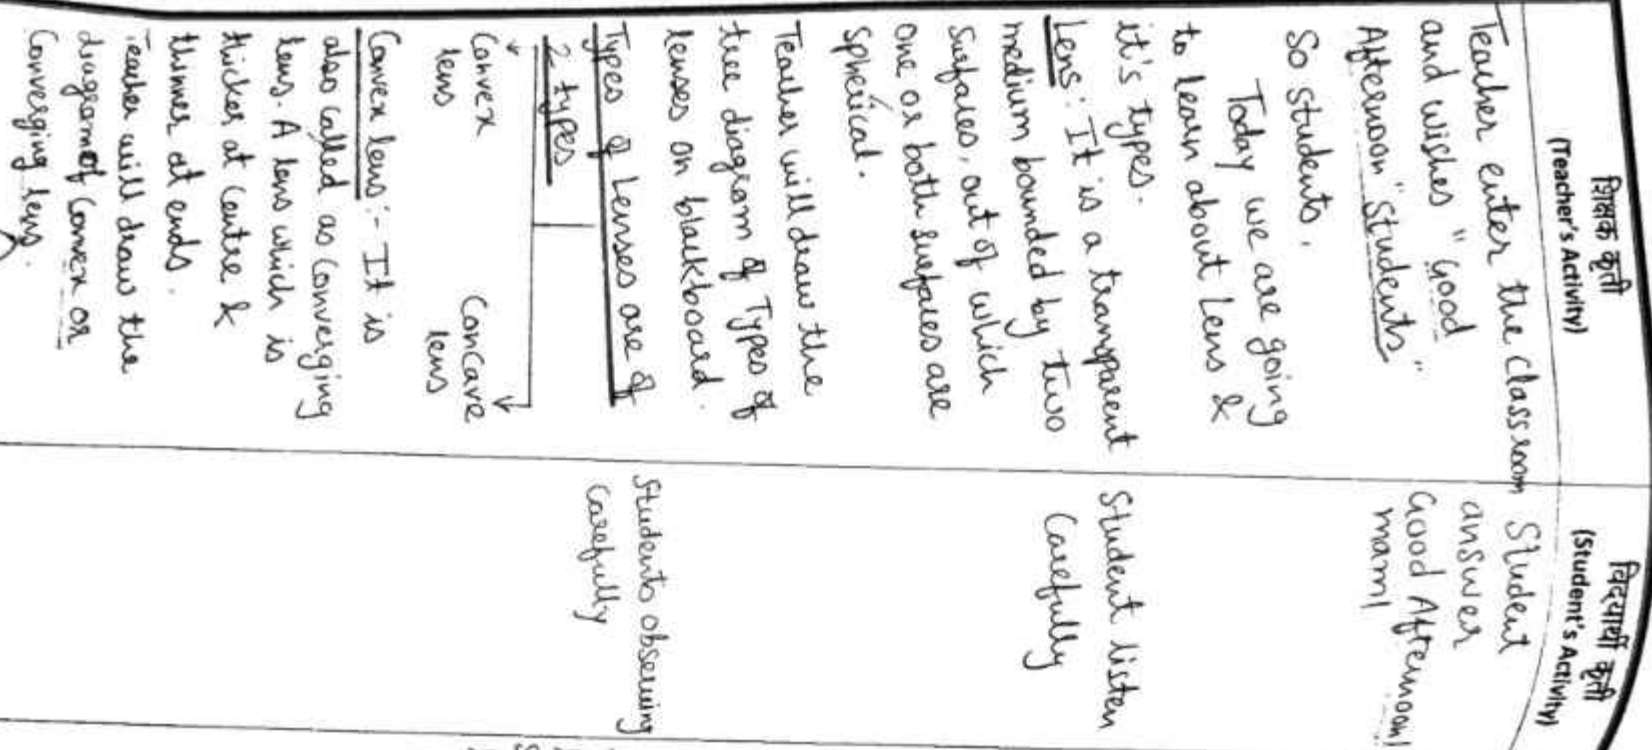 शिक्षक कृती
(Teacher's Activity)
Teacher enter the Classroom
and wishes "Good
Afternoon "Students"
So students,
Today we are going
to learn about Lens &
it's types.
Lens: It is a transparent
medium bounded by two
surfaces, out of which
one or both surfaces are
spherical.
Teacher will draw the
tree diagram of Types of
lenses on blackboard.
Types of Lenses are of
2 types
Convex
lens
Concave
lens
Convex lens:- It is
also called as Converging
lens. A lens which is
thicker at Centre &
thinner at ends.
Teacher will draw the
diagram of Convex or
Converging lens.
विद्यार्थी कृती
(Student's Activity)
Student
answer
Good Afternoon!
mam!
Student listen
Carefully
Students observing
carefully